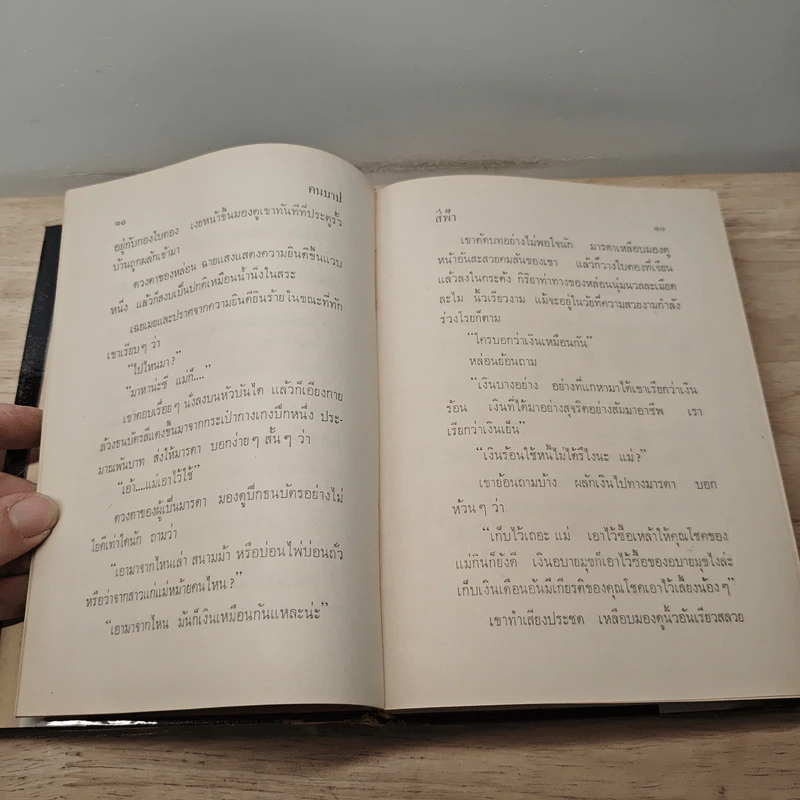 ๑๐
คนบาป
อยู่กับกองใบตอง เงยหน้าขึ้นมองดูเขาทันทีที่ประตูรั้ว
บ้านถูกผลักเข้ามา
ดวงตาของหล่อน ฉายแสงแสดงความยินดีขึ้นแวบ
หนึ่ง แล้วก็สงบเป็นปกติเหมือนน้ำนิ่งในสระ
เฉยเมยและปราศจากความยินดียินร้ายในขณะที่ทัก
เขาเรียบๆ ว่า
“ไปไหนมา?”
“มาหาน่ะซี แม่ก็....”
เขาตอบเรื่อยๆ นั่งลงบนหัวบันได แล้วก็เอียงกาย
ล้วงธนบัตรสีแดงขึ้นมาจากกระเป๋ากางเกงปึกหนึ่ง ประ-
มาณพันบาท ส่งให้มารดา บอกง่ายๆ สั้นๆ ว่า
“เอ้า....แม่เอาไว้ใช้”
ดวงตาของผู้เป็นมารดา มองดูปึกธนบัตรอย่างไม่
ใยดีเท่าใดนัก ถามว่า
“เอามาจากไหนเล่า สนามม้า หรือบ่อนไพ่บ่อนถั่ว
หรือว่าจากสาวแก่แม่หม้ายคนไหน?”
“เอามาจากไหน มันก็เงินเหมือนกันแหละน่ะ”
สีฟ้า
๑๑
เขาตัดบทอย่างไม่พอใจนัก มารดาเหลือบมองดู
หน้าอันสะสวยคมสันของเขา แล้วก็วางใบตองที่เจียน
แล้วลงในกระด้ง กิริยาท่าทางของหล่อนนุ่มนวลละเมียด
ละไม นิ้วเรียวงาม แม้จะอยู่ในวัยที่ความสวยงามกำลัง
ร่วงโรยก็ตาม
“ใครบอกว่าเงินเหมือนกัน”
หล่อนย้อนถาม
“เงินบางอย่าง อย่างที่แกหามาได้เขาเรียกว่าเงิน
ร้อน เงินที่ได้มาอย่างสุจริตอย่างสัมมาอาชีพ เรา
เรียกว่าเงินเย็น”
“เงินร้อนใช้หนี้ไม่ได้รึไงนะ แม่?”
เขาย้อนถามบ้าง ผลักเงินไปทางมารดา บอก
ห้วนๆ ว่า
“เก็บไว้เถอะแม่ เอาไว้ซื้อเหล้าให้คุณโชคของ
แม่กินก็ยังดี เงินอบายมุขก็เอาไว้ซื้อของอบายมุขไงล่ะ
เก็บเงินเดือนอันมีเกียรติของคุณโชคเอาไว้เลี้ยงน้องๆ”
เขาทำเสียงประชด เหลือบมองดูนิ้วอันเรียวสลวย